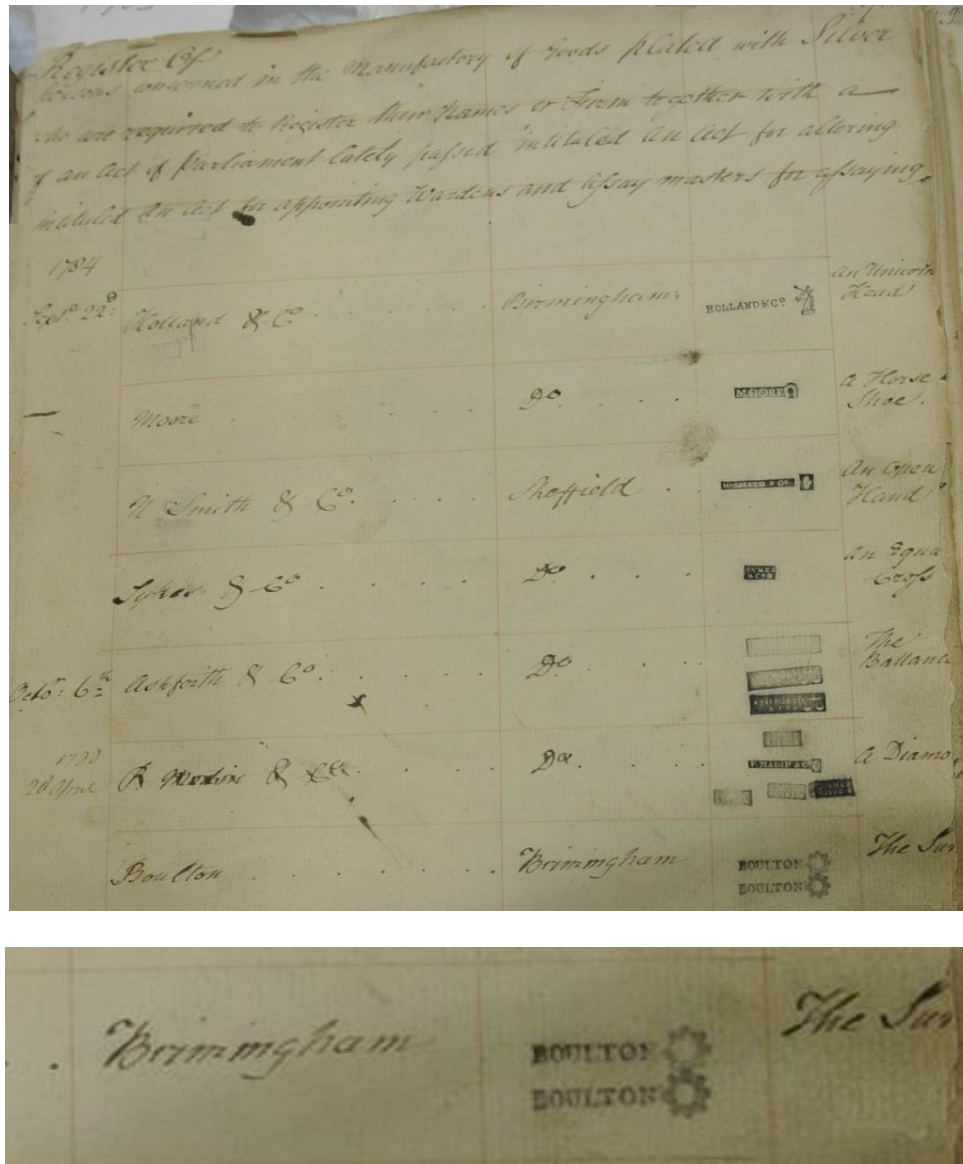 Register Of
Persons concerned in the Manufactory of Goods plated with Silver
who are required to Register their Names or Firm together with a
of an Act of Parliament lately passed intituled An Act for altering
intituled An Act for appointing Wardens and Assay masters for assaying
1784
Septr. 22d Holland & Co Birmingham HOLLAND & Co An Unicorn Head
Moore Do MOORE A Horse Shoe.
N Smith & Co. Sheffield An Open Hand
Sykes & Co Do SYKES & Co An Equa Cross
Octor: 6th Ashforth & Co. Do The Ballance
28 April R & Co Do F. MADIN & Co A Diamo
Boulton Birmingham BOULTON The Sun
BOULTON
Birmingham BOULTON The Sun
BOULTON